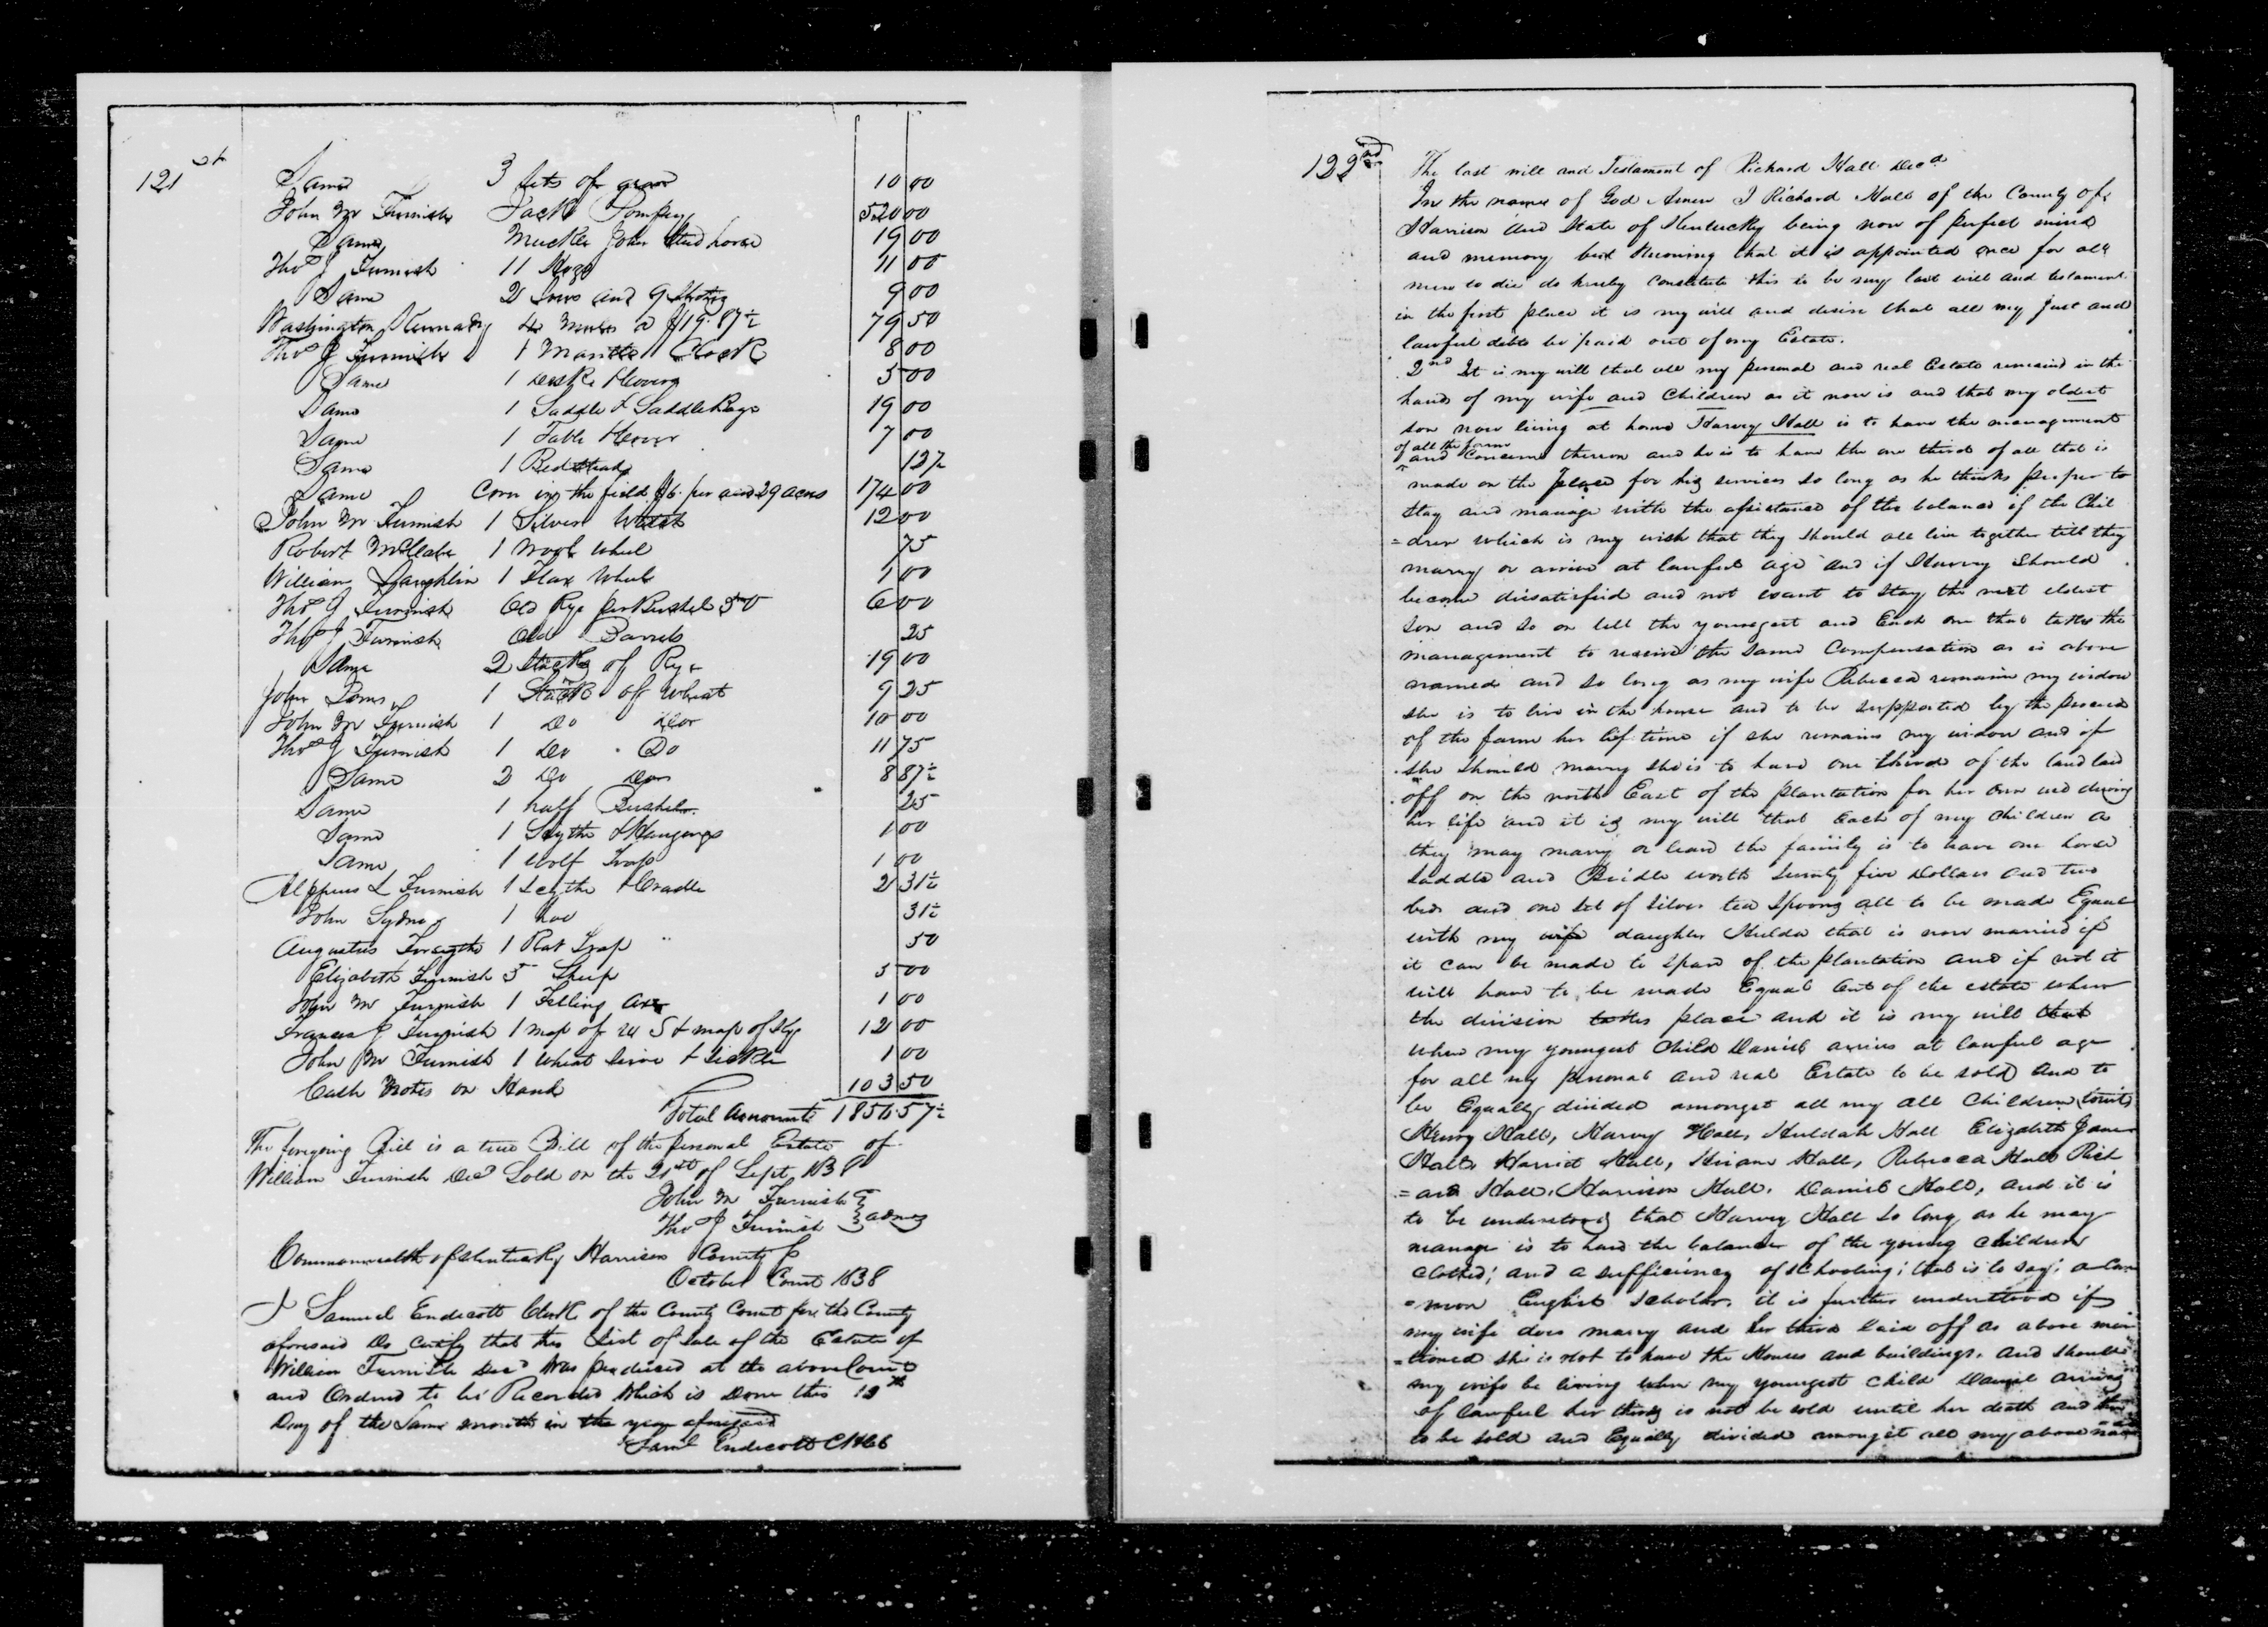 121st
Same 3 Sets of gear 10 00
John M Furnish Jack Pompey 520 00
Same John Stud horse 19 00
Thos J Furnish 11 Hogs 11 00
Same 2 Sows and 9 Shotes 9 00
Washington Kennady 4 Mules a $19.87½ 79 50
Thos J Furnish 1 Mantle Clock 8 00
Same 1 Desk 5 00
Same 1 Saddle & Saddle Bags 19 00
Same 1 Table 7 00
Same 1 Bedstead 12½
Same Corn in the field $6. per acre 29 acres 174 00
John M Furnish 1 Silver Watch 12 00
Robert McClabe 1 Wool Wheel 75
William Laughlin 1 Flax Wheel 1 00
Thos J Furnish Old Rye per Bushel 50 6 00
Thos J Furnish Old Barrels 25
Same 2 Stacks of Rye 19 00
John 1 Stack of Wheat 9 25
John M Furnish 1 Do 10 00
Thos J Furnish 1 Do Do 11 75
Same 2 Do 8 87½
Same 1 half Bushel 25
Same 1 Scythe & Hangings 1 00
Same 1 Wolf Trap 1 00
Alppeus L Furnish 1 Scythe & Cradle 2 31½
John Sydner 1 hoe 31½
Augustus Forsythe 1 Rat Trap 50
Elizabeth Furnish 5 Sheep 5 00
John M Furnish 1 Felling axe 1 00
Francis J Furnish 1 map of U S & map of Ky 12 00
John M Furnish 1 Wheat Sieve & Sickle 1 00
Cash Notes on Hand 103 50
Total Amount 1856.57½
The foregoing Bill is a true Bill of the personal Estate of
William Furnish Decd Sold on the 21st of Sept 1838
John M Furnish
Tho J Furnish } admrs
Commonwealth of Kentucky Harrison County
October Court 1838
I Samuel Endicott Clerk of the County Court for the County
aforesaid Do certify that this List of Sale of the Estate of
William Furnish Decd Was produced at the above Court
and Ordered to be Recorded Which is Done this 12th
Day of the Same month in the year aforesaid
Saml Endicott
122nd
The last will and Testament of Richard Hall Decd
In the name of God Amen I Richard Hall of the County of
Harrison and State of Kentucky being now of perfect mind
and memory but knowing that it is appointed once for all
men to die do hereby constitute this to be my last will and testament
in the first place it is my will and desire that all my just and
lawful debts be paid out of my Estate.
2nd It is my will that all my personal and real Estate remaind in the
hands of my wife and Children as it now is and that my oldest
son now living at home Harvey Hall is to have the management
of all the farm
and Concerns thereon and he is to have the one third of all that is
made on the place for his services so long as he thinks proper to
Stay and manage with the assistance of the balance if the Chil
=dren which is my wish that they should all live together till they
marry or arrive at lawful age and if Harvey Should
become disatisfied and not want to Stay the next eldest
Son and so on till the youngest and Each one that takes the
management to receive the Same Compensation as is above
named and so long as my wife Rebecca remain my widow
she is to live in the house and to be supported by the proceeds
of the farm her life time if she remains my widow and if
she should marry she is to have one third of the land laid
off on the north East of the plantation for her own use during
her life and it is my will that Each of my Children as
they may marry or leave the family is to have one horse
Saddle and Bridle worth Seventy five Dollars and two
beds and one Set of Silver tea Spoons all to be made Equal
with my wife daughter Hulda that is now married if
it can be made to Spare of the plantation and if not it
will have to be made Equal out of the estate when
the division takes place and it is my will that
when my youngest Child Daniel arrives at lawful age
for all my personal and real Estate to be sold and to
be Equally divided amongst all my all Children towit
Henry Hall, Harvey Hall, Huldah Hall Elizabeth Jane
Hall, Harriet Hall, Hiram Hall, Rebecca Hall Rich
=ard Hall, Harrison Hall, Daniel Hall, and it is
to be understood that Harvey Hall So long as he may
manage is to have the balance of the young children
clothed; and a sufficiency of schooling; that is to say; a Com
=mon English Scholar. it is further understood if
my wife does marry and her third laid off as above men
=tioned she is not to have the Houses and buildings. and should
my wife be living when my youngest child Daniel arives
of lawful her third is not be sold until her death and then
to be sold and Equally divided amongst all my above